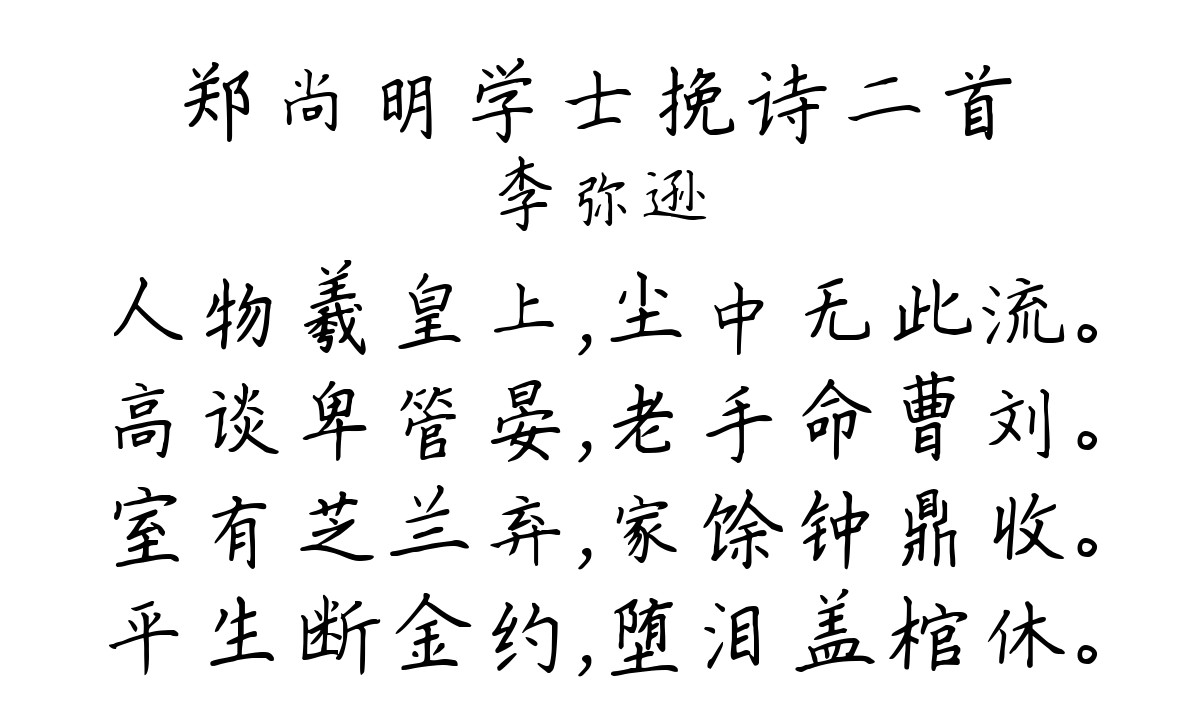 郑尚明学士挽诗二首
李弥逊
人物羲皇上,尘中无此流。
高谈卑管晏,老手命曹刘。
室有芝兰弃,家馀钟鼎收。
平生断金约,堕泪盖棺休。